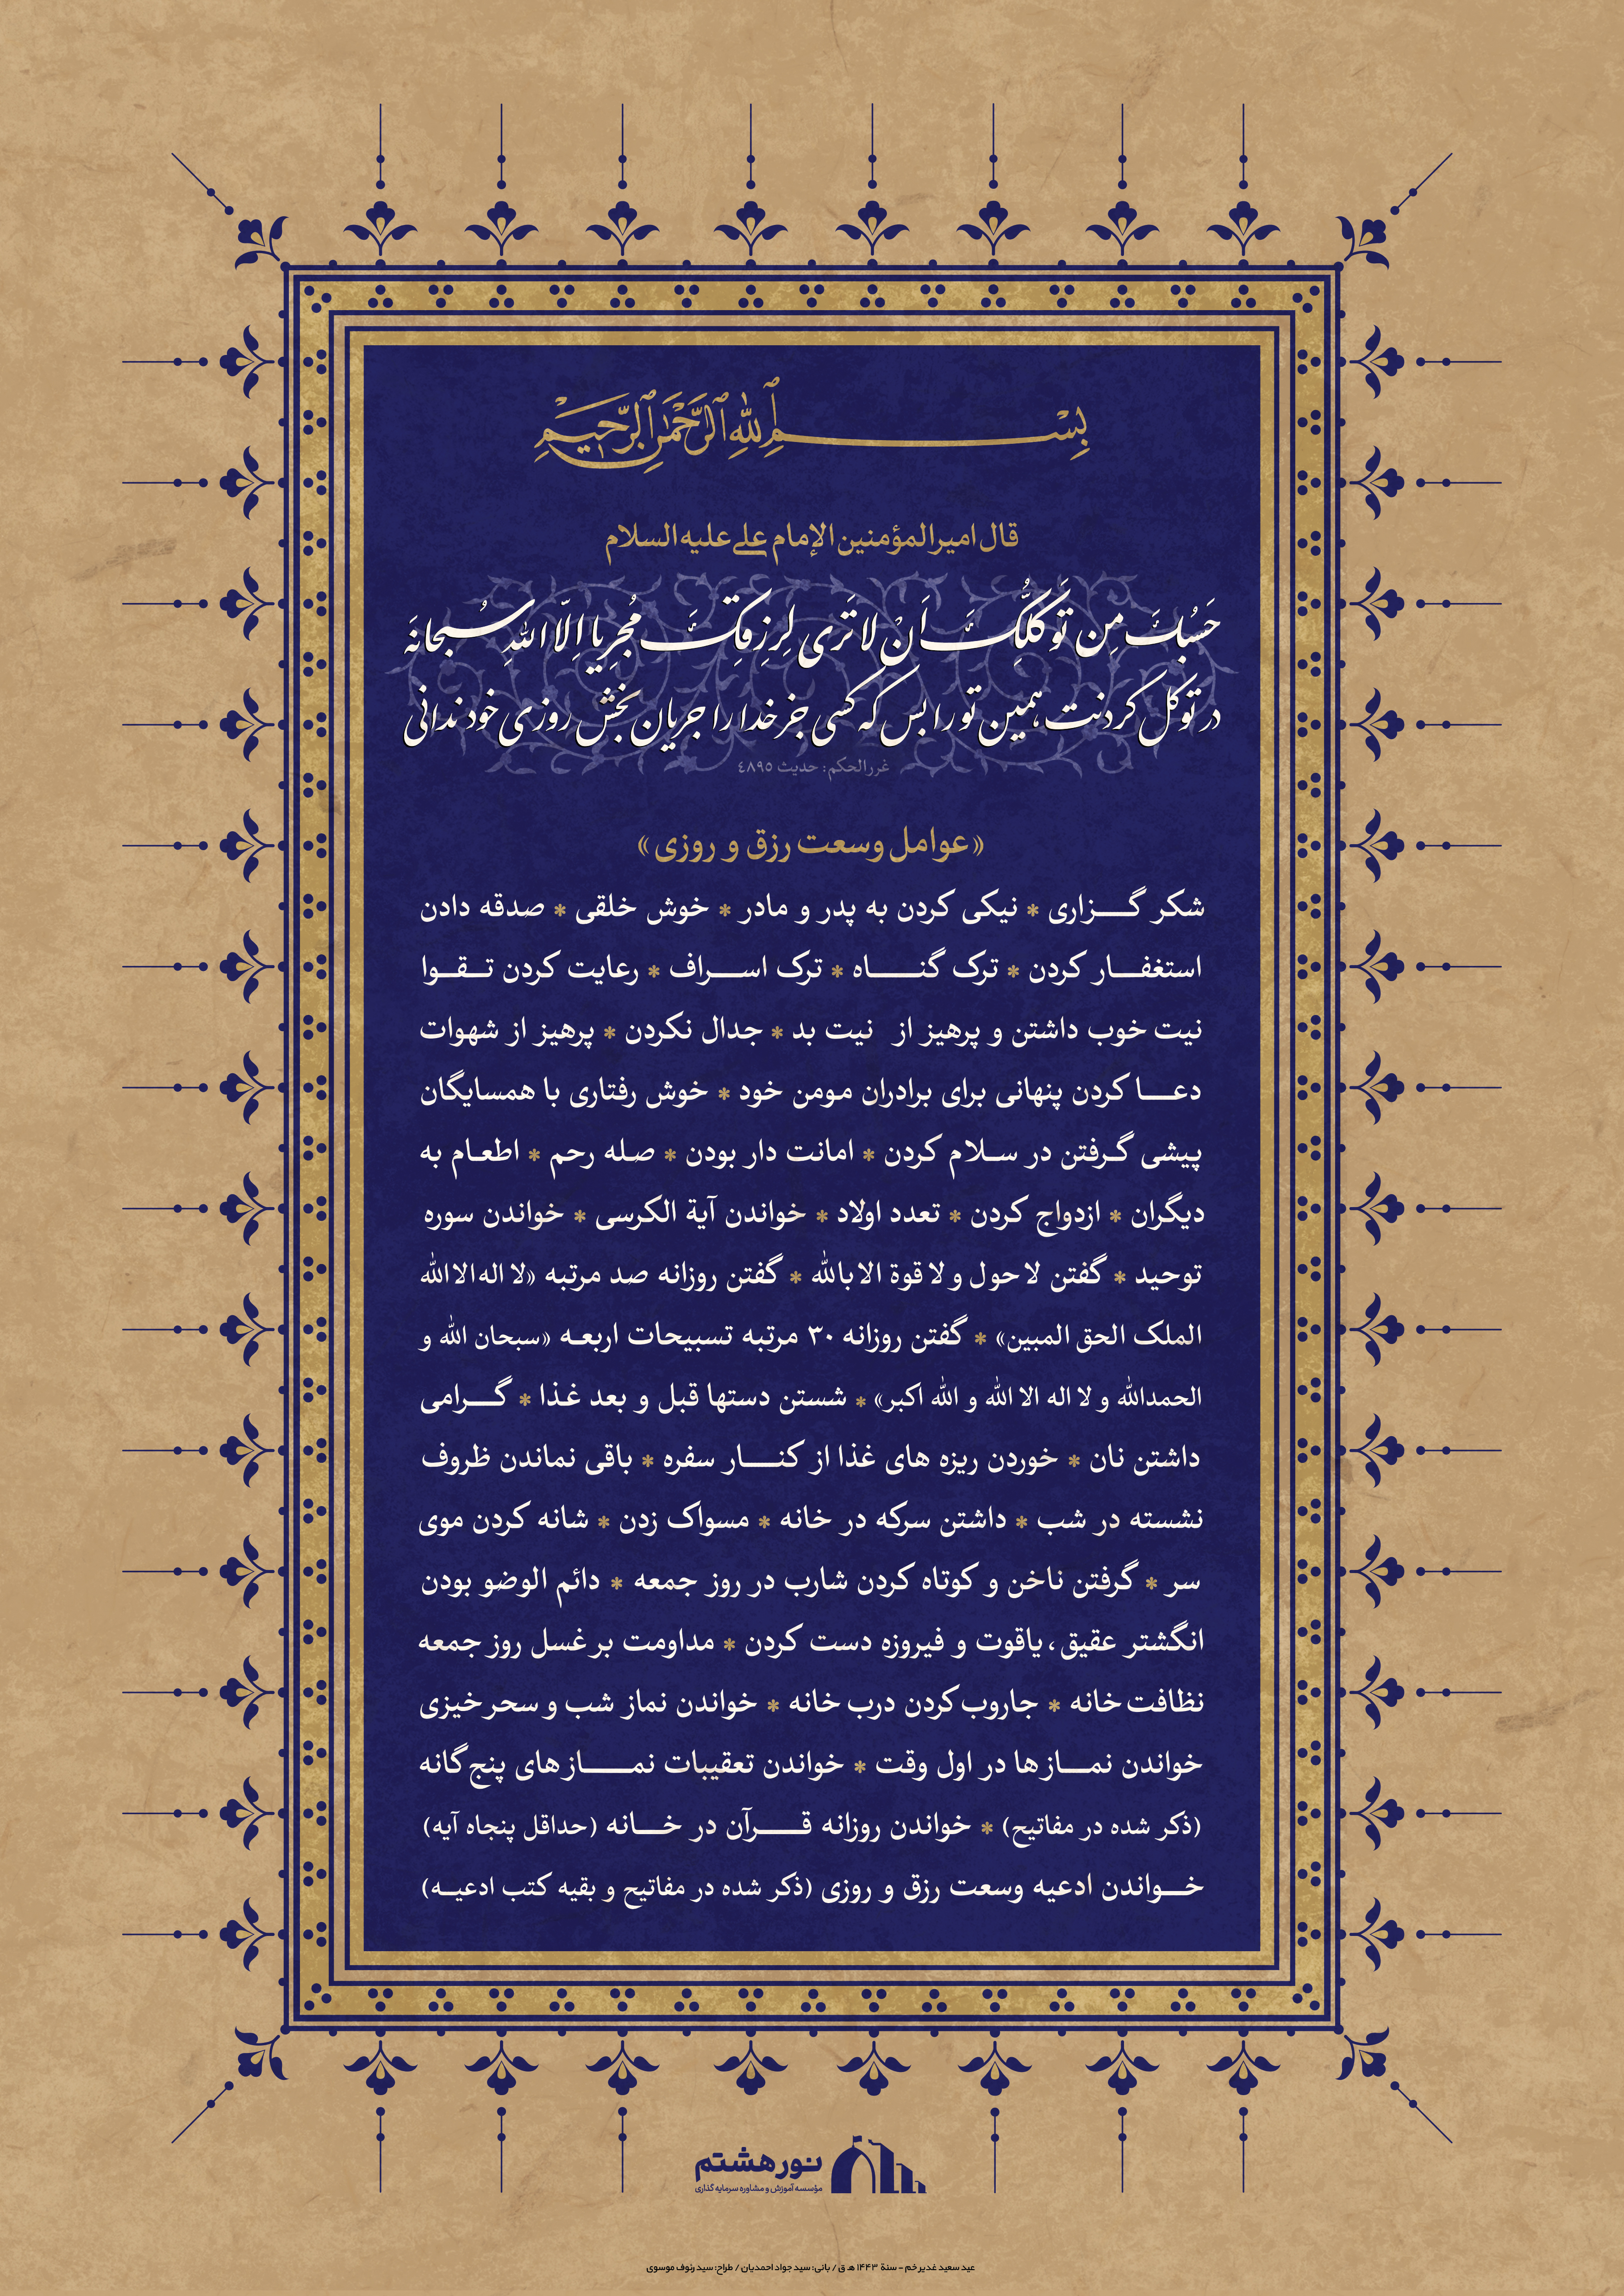 بِسْمِ ٱللهِ ٱلرَّحْمٰنِ ٱلرَّحِیمِ
قال امیرالمؤمنین الإمام علی علیه السلام
حَسْبُكَ مِن تَوَكُّلِكَ اَنْ لا تَرَى لِرِزقِكَ مُجرِیا اِلّا اللهِ سُبحانَهَ
در توکل کردنت همین تو را بس که کسی جز خدا را جریان بخش روزی خود ندانی
غررالحکم: حدیث ٤٨٩٥
«عوامل وسعت رزق و روزی»
شکر گـــزاری * نیکی کردن به پدر و مادر * خوش خلقی * صدقه دادن
استغفـــار کردن * ترک گنـــــاه * ترک اســـراف * رعایت کردن تــقــوا
نیت خوب داشتن و پرهیز از نیت بد * جدال نکردن * پرهیز از شهوات
دعـــا کردن پنهانی برای برادران مومن خود * خوش رفتاری با همسایگان
پیشی گـرفتن در سـلام کردن * امانت دار بودن * صـله رحم * اطعـام به
دیگران * ازدواج کردن * تعدد اولاد * خواندن آیة الکرسی * خواندن سوره
توحید * گفتن لا حول و لا قوة الا بالله * گفتن روزانه صد مرتبه «لا اله الا الله
الملک الحق المبین» * گفتن روزانه ۳۰ مرتبه تسبیحات اربعـه «سبحان الله و
الحمدالله و لا اله الا الله و الله اکبر» * شستن دستها قبل و بعد غـذا * گـــرامی
داشتن نان * خوردن ریزه های غذا از کنـــار سفره * باقی نماندن ظروف
نشسته در شب * داشتن سرکه در خانه * مسواک زدن * شانه کردن موی
سر * گرفتن ناخن و کوتاه کردن شارب در روز جمعه * دائم الوضو بودن
انگشتر عقیق، یاقوت و فیروزه دست کردن * مداومت بر غسل روز جمعه
نظافت خانه * جاروب کردن درب خانه * خواندن نماز شب و سحر خیزی
خواندن نمـــاز ها در اول وقت * خواندن تعقیبات نمـــــاز های پنج گانه
(ذکر شده در مفاتیح) * خواندن روزانه قـــرآن در خـــانه (حداقل پنجاه آیه)
خـــواندن ادعیه وسعت رزق و روزی (ذکر شده در مفاتیح و بقیه کتب ادعیـه)
نور هشتم
مؤسسه آموزش و مشاوره سرمایه گذاری
عید سعید غدیر خم - سنة ۱۴۴۳ هـ ق / بانی: سید جواد احمدیان / طراح: سید رئوف موسوی